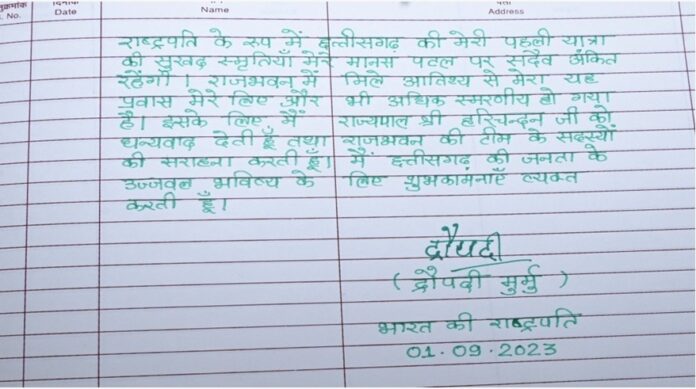 क्रमांक दिनांक पता
S. No. Date Name Address
राष्ट्रपति के रूप में छत्तीसगढ़ की मेरी पहली यात्रा
की सुखद स्मृतियाँ मेरे मानस पटल पर सदैव अंकित
रहेंगी । राजभवन में मिले आतिथ्य से मेरा यह
प्रवास मेरे लिए और भी अधिक स्मरणीय हो गया
है। इसके लिए, मैं राज्यपाल श्री हरिचन्दन जी को
धन्यवाद देती हूँ तथा राजभवन की टीम के सदस्यों
की सराहना करती हूँ। मैं छत्तीसगढ़ की जनता के
उज्जवल भविष्य के लिए शुभकामनाएँ व्यक्त
करती हूँ।
द्रौपदी
( द्रौपदी मुर्मु )
भारत की राष्ट्रपति
01.09.2023